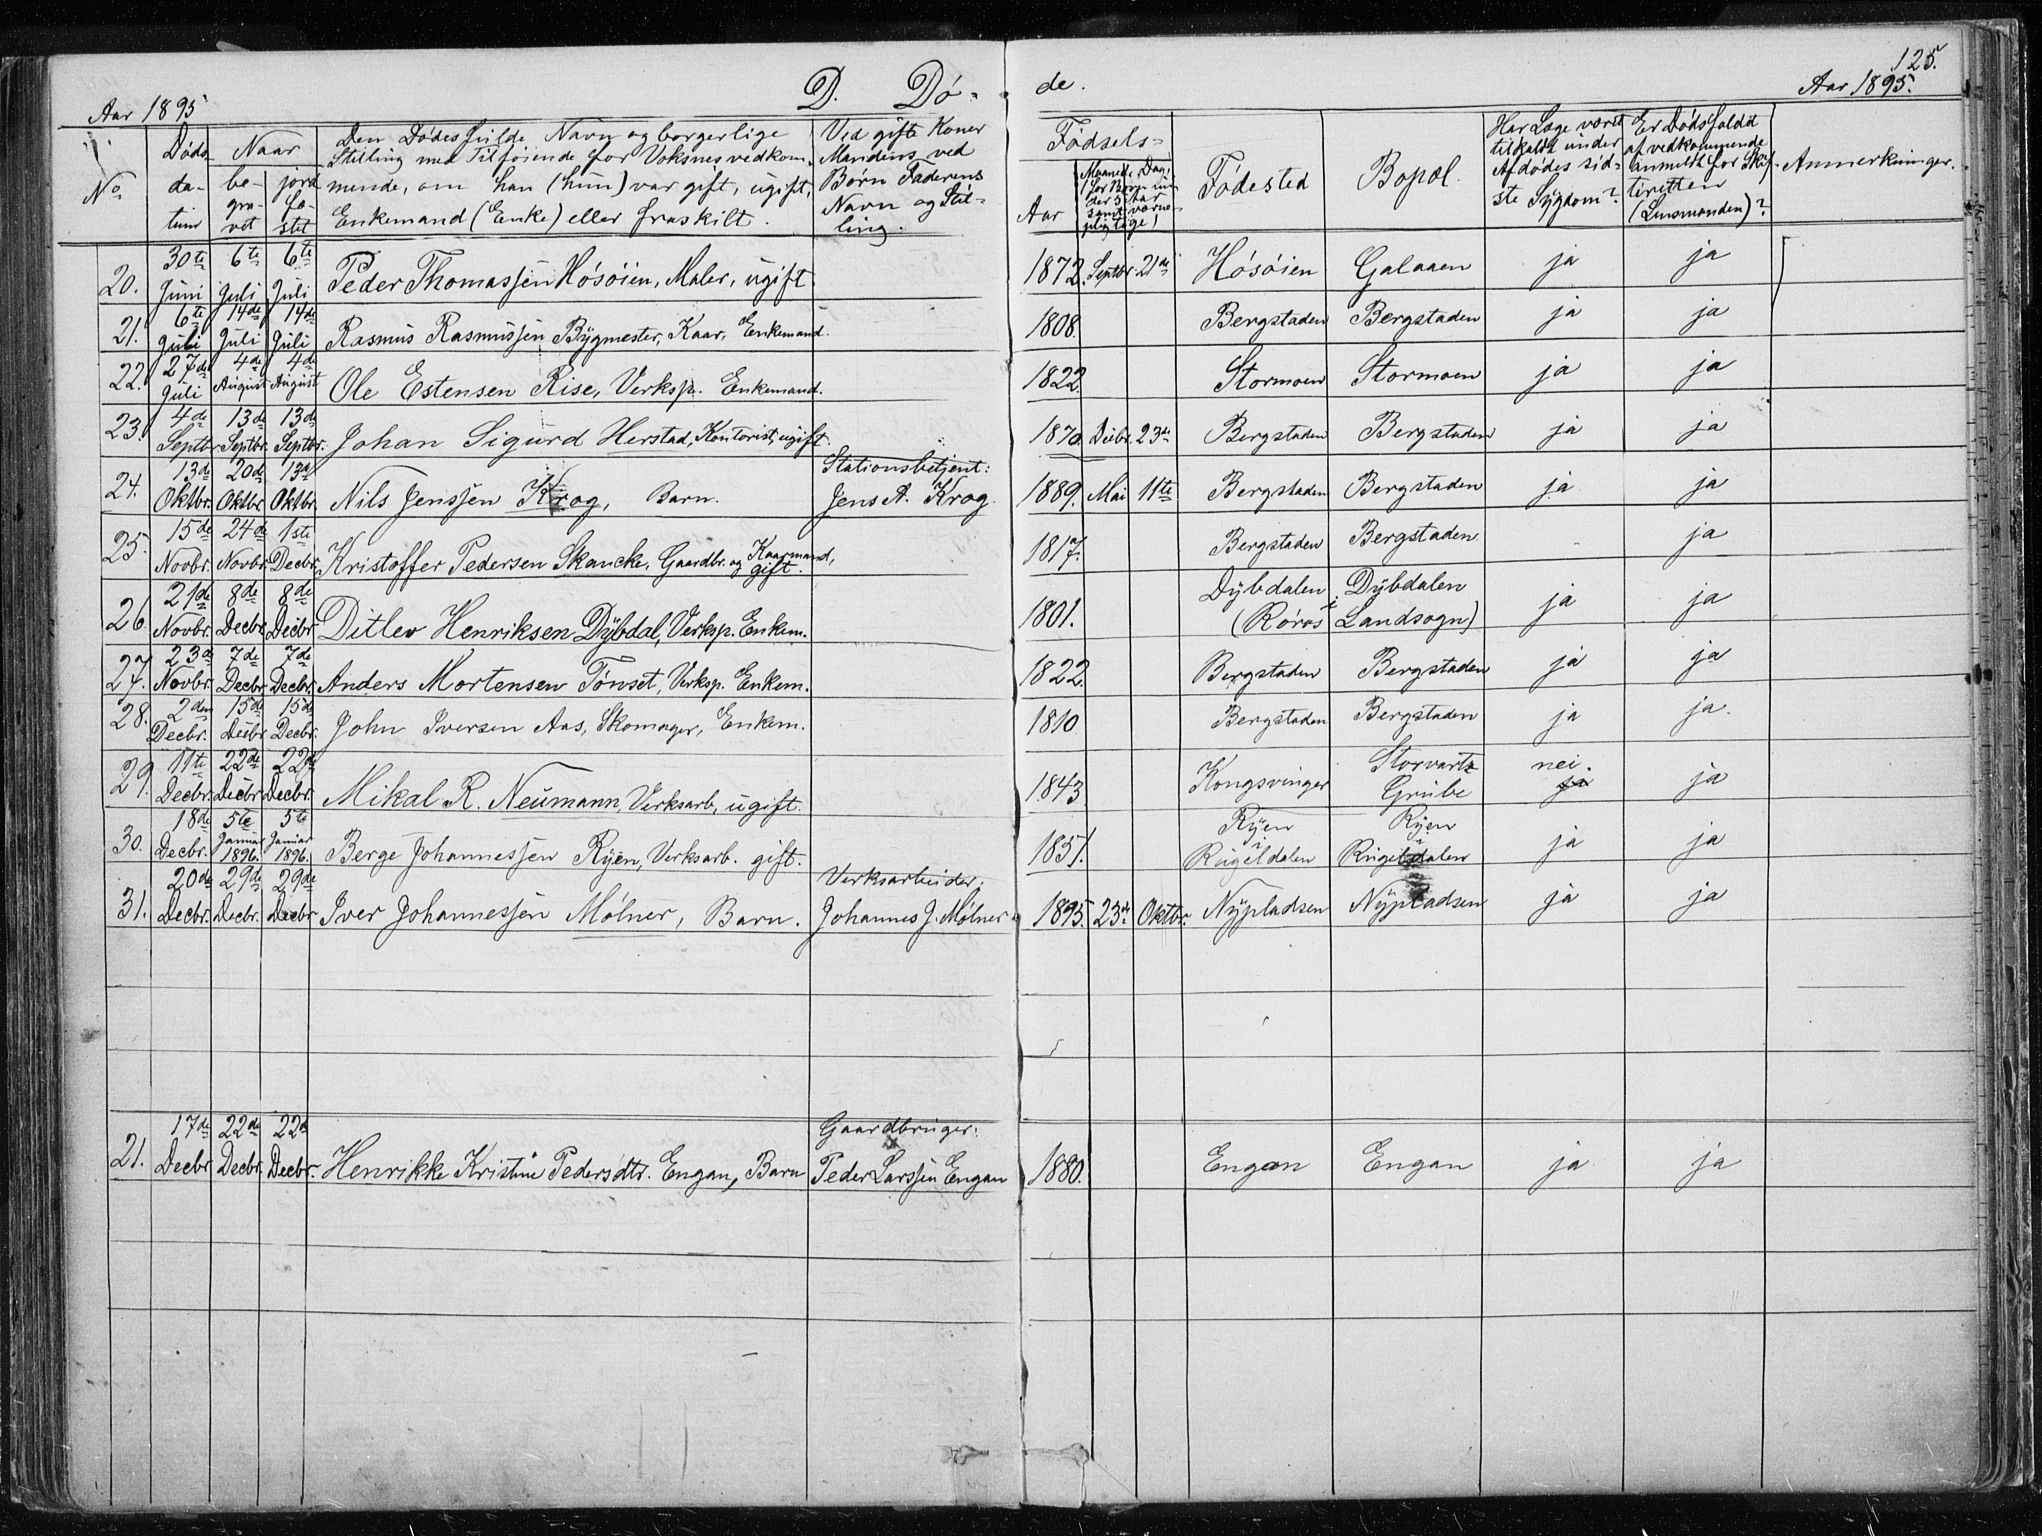 125.
Aar 1895
D. Dö-
de.
Aar 1895.
No
Døds datum
Naar
be-gravet
jordfæstet
Den Dødes fulde Navn og borgerlige
Stilling med Tilføiende for Voksnes vedkom-
mende, om han (hun) var gift, ugift,
Enkemand (Enke) eller fraskilt.
Ved gifte Koner
Mandens, ved
Børn Faderens
Navn og Stil-
ling.
Fødsels-
Aar
Fødested
Bopæl.
Har Læge været
tilkaldt under
Afdødes sid-
ste Sygdom?
Er Dødsfaldet
af vedkommende
anmeldt for Skif-
teretten
(Lensmanden)?
Anmerkninger.
20. 30te Juni 6te Juli 6te Juli Peder Thomassen Hósóien, Maler, ugift. 1872. Septbr. 21de Hósóien Galaaen ja ja
21. 6te Juli 14de Juli 14de Juli Rasmus Rasmussen Bygmester, Kaar, Enkemand. 1808. Bergstaden Bergstaden ja ja
22. 27de Juli 4de August 4de August Ole Estensen Rise, Verksp. Enkemand. 1822. Stormoen Stormoen ja ja
23. 4de Septbr. 13de Septbr. 13de Septbr. Johan Sigurd Herstad, Kontorist, ugift. 1870. Decbr. 23de Bergstaden Bergstaden ja ja
24. 13de Oktbr. 20de Oktbr. 13de Oktbr. Nils Jenssen Krog, Barn. Stationsbetjent: Jens A. Krog. 1889. Mai 11te Bergstaden Bergstaden ja ja
25. 15de Novbr. 24de Novbr. 1ste Decbr. Kristoffer Pedersen Skancke, Gaardbr. og Kaarmand, gift. 1817. Bergstaden Bergstaden - ja
26. 21de Novbr. 8de Decbr. 8de Decbr. Ditlev Henriksen Dybdal, Verksp. Enkem. 1801. Dybdalen Dybdalen (Røros Landsogn) ja ja
27. 23de Novbr. 7de Decbr. 7de Decbr. Anders Mortensen Tönset, Verksp. Enkem. 1822. Bergstaden Bergstaden ja ja
28. 2den Decbr. 15de Decbr. 15de Decbr. John Iversen Aas, Skomager, Enkem. 1810 Bergstaden Bergstaden ja ja.
29. 11te Decbr. 22de Decbr. 22de Decbr. Mikal R. Neumann, Verksarb, ugift. 1843 Kongsvinger Storvartz Grube nei. ja ja
30. 18de Decbr. 5te Januar 1896. 5te Januar 1896. Berge Johannessen Ryen, Verksarb. gift. 1851. Ryen i Rugeldalen Ryen i Rugeldalen ja ja
31. 20de Decbr. 29de Decbr. 29de Decbr. Iver Johannessen Mølner, Barn. Verksarbeider: Johannes J. Mølner 1895. 23de Oktbr. Nypladsen Nypladsen ja ja
21. 17de Decbr. 22de Decbr. 22de Decbr. Henrikke Kristine Pedersdtr. Engan, Barn Gaardbruger: Peder Larssen Engan 1880. Engan Engan ja ja